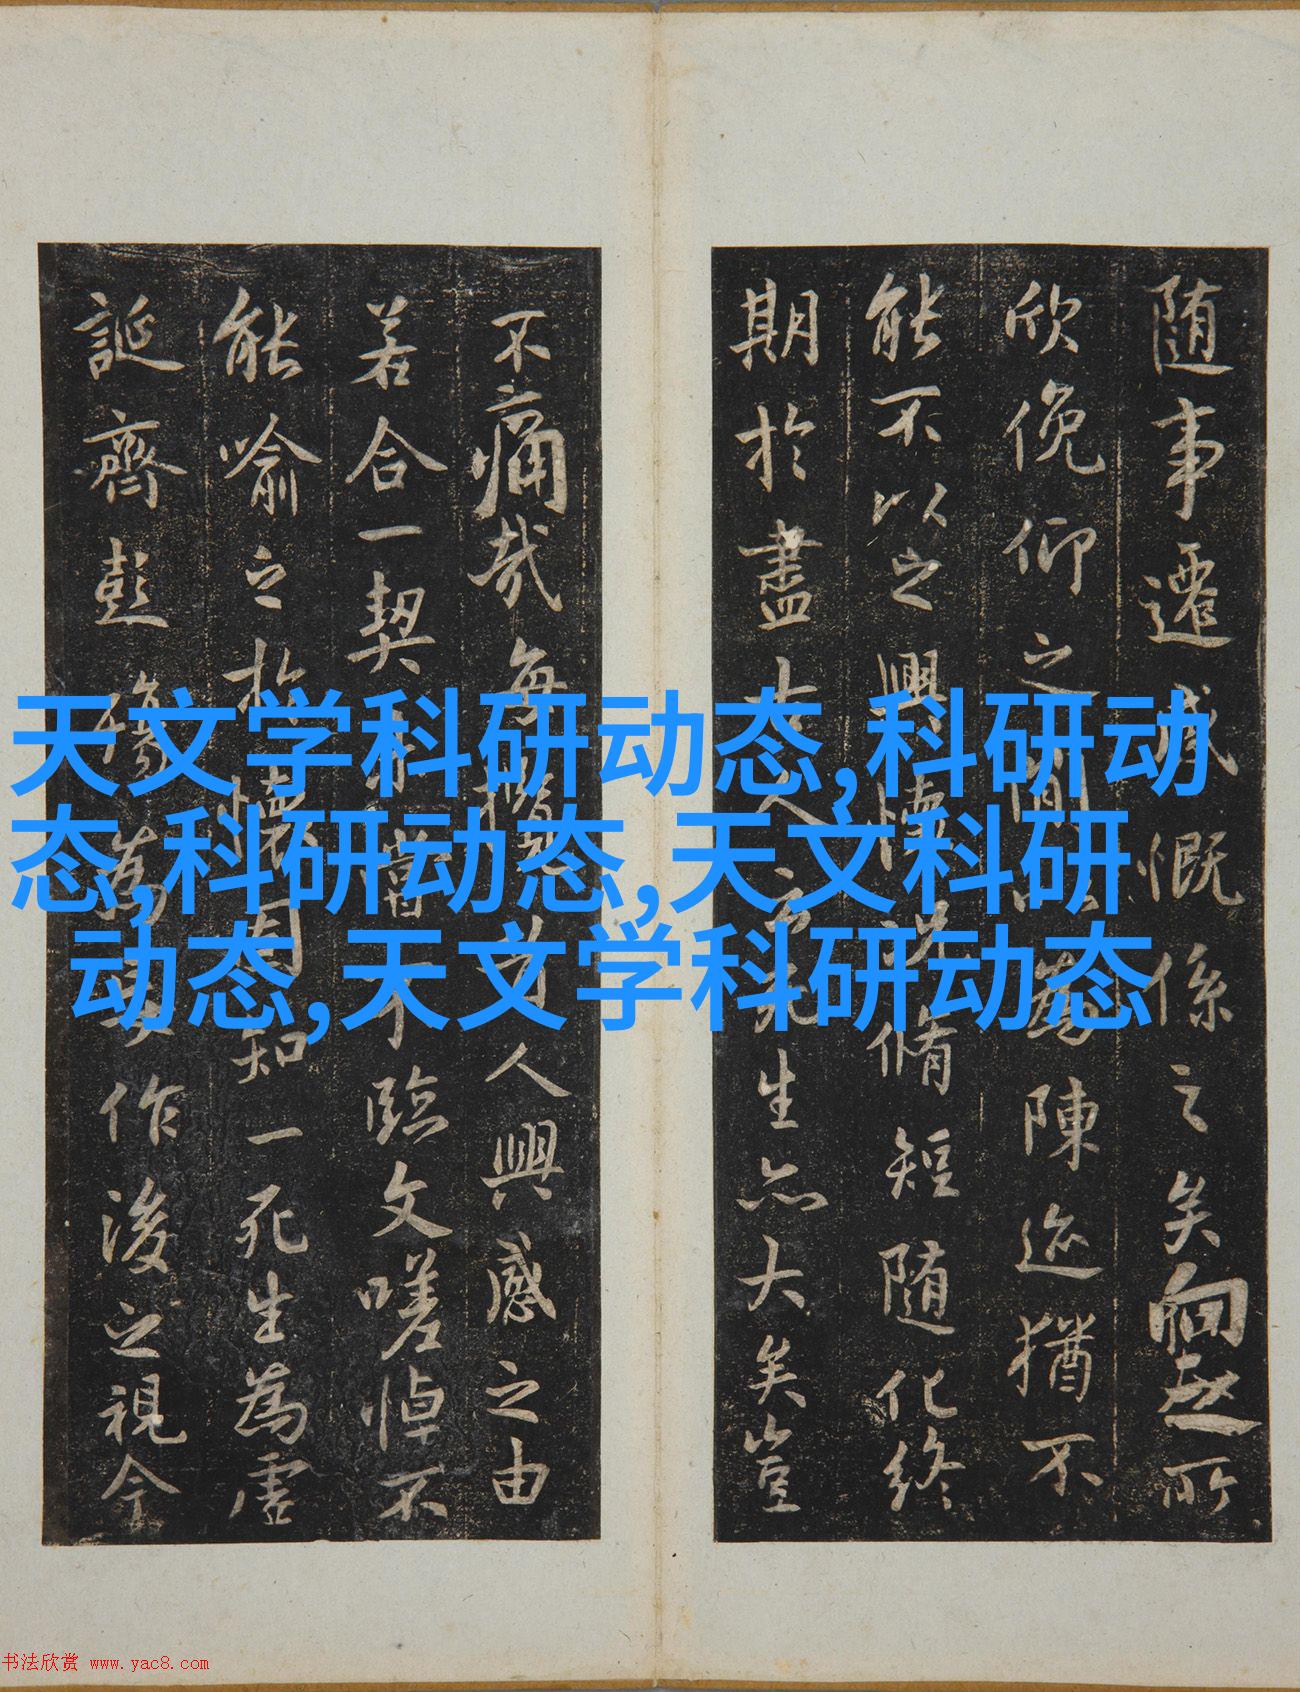 随事遷感慨係之矣向之所
欣俛仰之間以為陳迹猶不
能不以之興懷況脩短随化終
期於盡古人云死生亦大矣豈
不痛哉每攬昔人興感之由
若合一契未嘗不臨文嗟悼不
能喻之於懷固知一死生為虛
誕齊彭殤為妄作後之視今
天文学科研动态,科研动
态,科研动态,天文科研
动态,天文学科研动态
书法欣赏 www.yac8.com